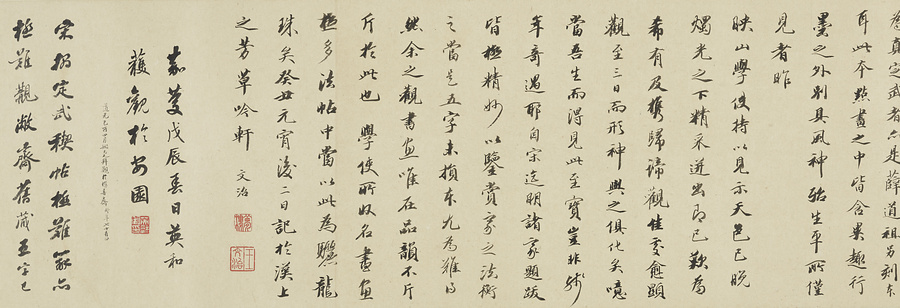 為真定武者亦是薛道祖另刻本
耳此本點畫之中皆含異趣行
墨之外別具風神殆生平所僅
見者昨
映山學使持以見示天色已晚
燭光之下精采迸出即已歎為
希有及携歸諦觀佳處愈顯
觀至三日而形神與之俱化矣噫
當吾生而得見此至寶豈非
年奇遇耶自宋迄明諸家題跋
皆極精妙以鑒賞家之法衡
之當是五字未損本尤為難得
然余之觀書畫唯在品韻不斤
斤於此也 學使所收名畫
極多法帖中當以此為驪龍
珠矣癸丑元宵後二日記於漢上
之芳草吟軒 文治
嘉慶戊辰春日英和
獲觀於安園
宋搨定武稧帖極難
極難觀淑齋舊藏五字已